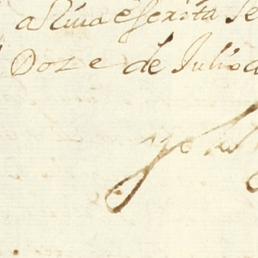 aRiva escrita Se
Doze de Julio d